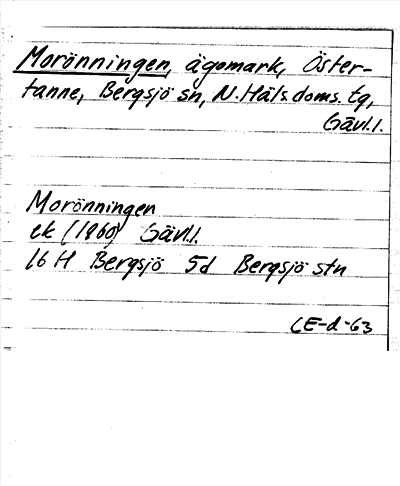 Morönningen, ägomark, Öster-
tanne, Bergsjö sn, N. Häls. doms. tg,
Gävl.l.
Morönningen
ek (1960) Gävl.l.
16 H Bergsjö 5d Bergsjö stn
CE-d-63